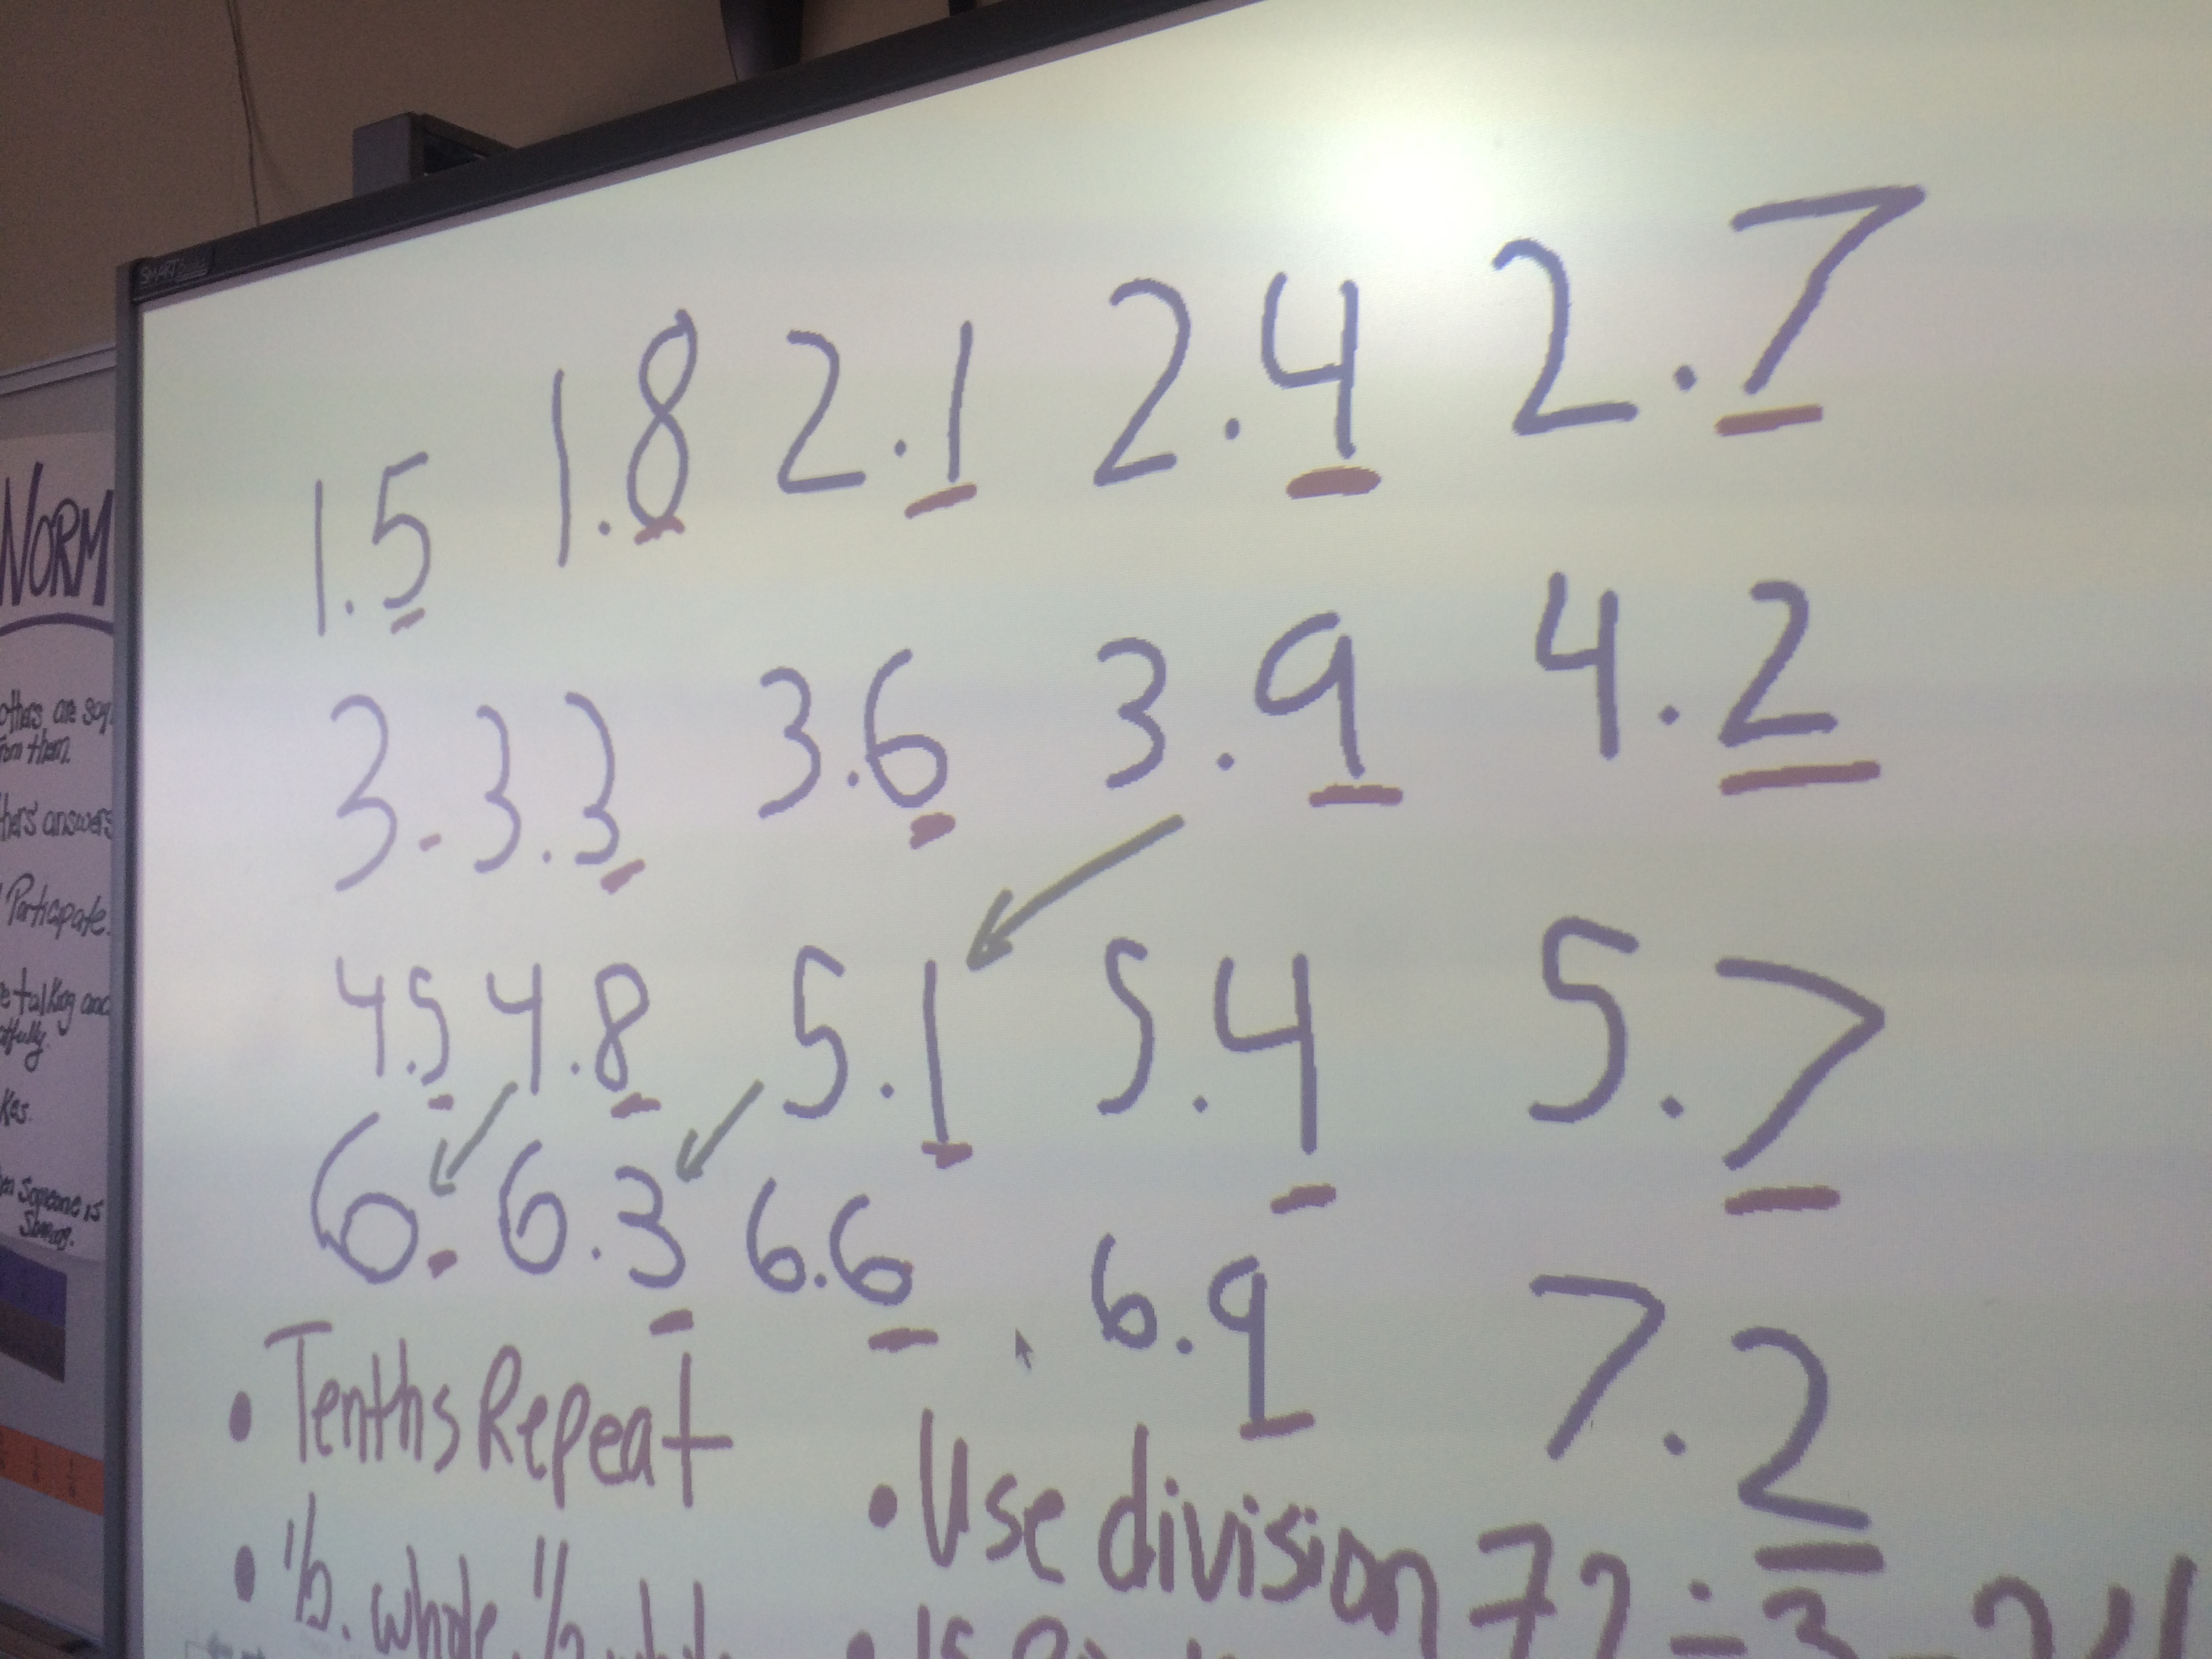 SMART
1.5 1.8 2.1 2.4 2.7
3 3.3 3.6 3.9 4.2
4.5 4.8 5.1 5.4 5.7
6. 6.3 6.6 6.9 7.2
• Tenths Repeat
• Use division 72 ÷ 3 = 24
• 1/2. whole, 1/2
NORM
others are say
from them.
hers' answers
Participate.
e talking and
tfully.
kes.
en someone is
Sharing.